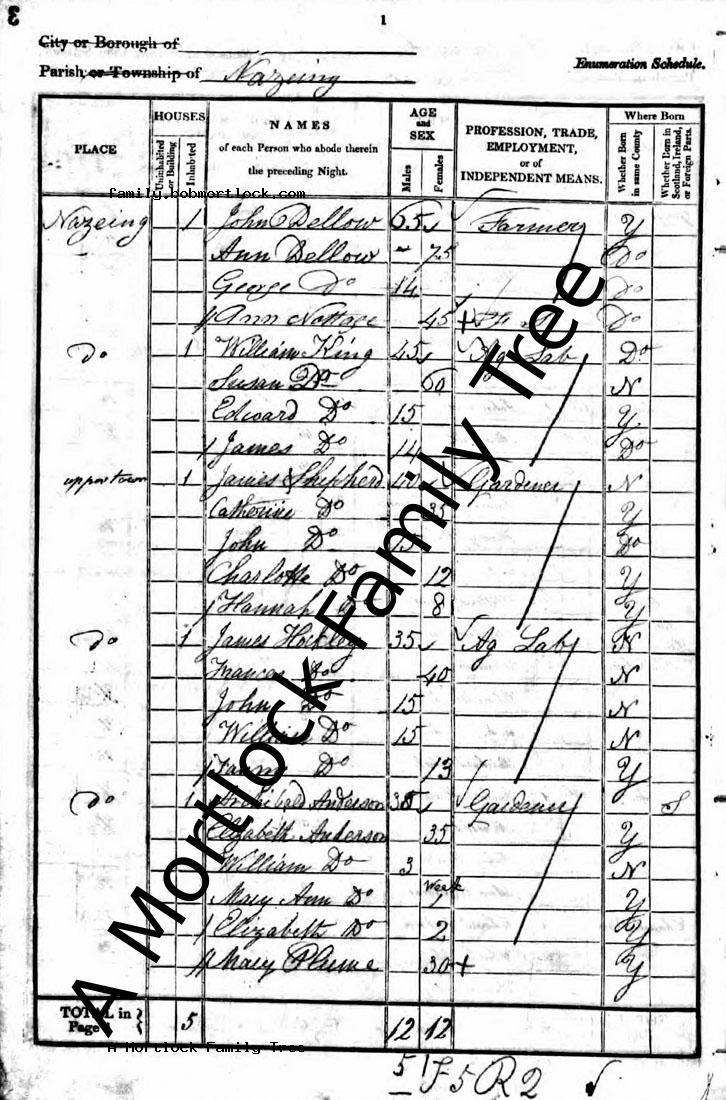 3
1
City or Borough of
Parish or Township of Nazeing
Enumeration Schedule.
PLACE
HOUSES
Uninhabited or Building
Inhabited
NAMES
of each Person who abode therein
the preceding Night.
AGE
and
SEX
Males
Females
PROFESSION, TRADE,
EMPLOYMENT,
or of
INDEPENDENT MEANS.
Where Born
Whether Born in same County
Whether Born in Scotland, Ireland, or Foreign Parts.
family.bobmortlock.com
Nazeing 1 John Dellow 65 Farmer Y
Ann Dellow 75 Do
George Do 14 Do
Ann Nottage 45 Do
Do 1 William King 45 Ag Lab Do
Susan Do 60 N
Edward Do 15 Y
James Do 14 Do
upper town 1 James Shepherd Gardener N
Catherine Do 35 Y
John Do 15 Do
Charlotte Do 12 Y
Hannah 8 Y
Do 1 James Hockley 35 Ag Lab N
Frances Do 40 N
John Do 15 N
William Do 15 N
Do 13 Y
Do 1 Archibald Anderson Gardener S
Elizabeth Anderson 35 Y
William Do 3 N
Mary Ann Do Week 1 Y
Elizabeth Do 2 Y
Mary Plume 30 + Y
TOTAL in Page 1 5 12 12
A Mortlock Family Tree
A Mortlock Family Tree
5 F5 R2